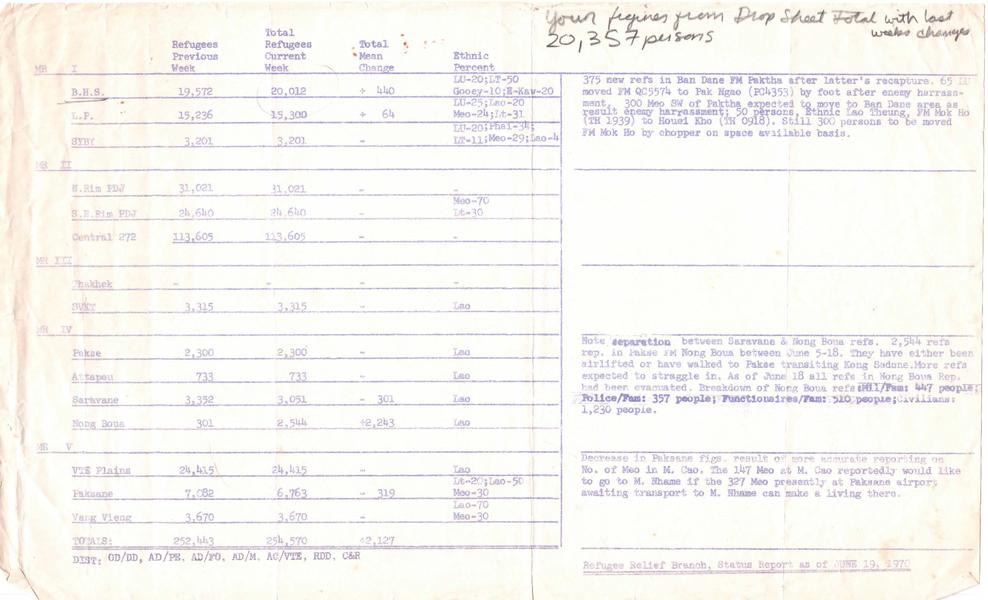 Your figures from Drop Sheet Total with last
weeks changes
20,357 persons
Refugees Previous Week
Total Refugees Current Week
Total Mean Change
Ethnic Percent
MR I
LU-20;LT-50
B.H.S. 19,572 20,012 + 440 Gooey-10;E-Kaw-20
LU-25;Lao-20
L.P. 15,236 15,300 + 64 Meo-24;Lt-31
LU-20;Phai-34;
SYBY 3,201 3,201 - LT-11;Meo-29;Lao-4
375 new refs in Ban Dane FM Paktha after latter's recapture. 65 LU
moved FM QC5574 to Pak Ngao (PC4353) by foot after enemy harrass-
ment. 300 Meo SW of Paktha expected to move to Ban Dane area as
result enemy harrassment; 50 persons, Ethnic Lao Theung, FM Mok Ho
(TH 1939) to Houei Kho (TH 0918). Still 300 persons to be moved
FM Mok Ho by chopper on space available basis.
MR II
N.Rim PDJ 31,021 31,021 - -
Meo-70
S.E.Rim PDJ 24,640 24,640 - Lt-30
Central 272 113,605 113,605 - -
MR III
Thakhek - - - -
SVKT 3,315 3,315 - Lao
MR IV
Pakse 2,300 2,300 - Lao
Attapeu 733 733 - Lao
Saravane 3,352 3,051 - 301 Lao
Nong Boua 301 2,544 +2,243 Lao
Note separation between Saravane & Nong Boua refs. 2,544 refs
rep. in Pakse FM Nong Boua between June 5-18. They have either been
airlifted or have walked to Pakse transiting Kong Sedone.More refs
expected to straggle in. As of June 18 all refs in Nong Boua Rep.
had been evacuated. Breakdown of Nong Boua refs:Mil/Fam: 447 people;
Police/Fam: 357 people; Functionaires/Fam: 510 people;Civilians:
1,230 people.
MR V
VTE Plains 24,415 24,415 - Lao
Lt-20;Lao-50
Paksane 7,082 6,763 - 319 Meo-30
Lao-70
Vang Vieng 3,670 3,670 - Meo-30
TOTALS: 252,443 254,570 +2,127
Decrease in Paksane figs. result of more accurate reporting on
No. of Meo in M. Cao. The 147 Meo at M. Cao reportedly would like
to go to M. Nhame if the 327 Meo presently at Paksane airport
awaiting transport to M. Nhame can make a living there.
DIST: OD/DD, AD/PE, AD/FO, AD/M, AC/VTE, RDD, C&R
Refugee Relief Branch, Status Report as of JUNE 19, 1970